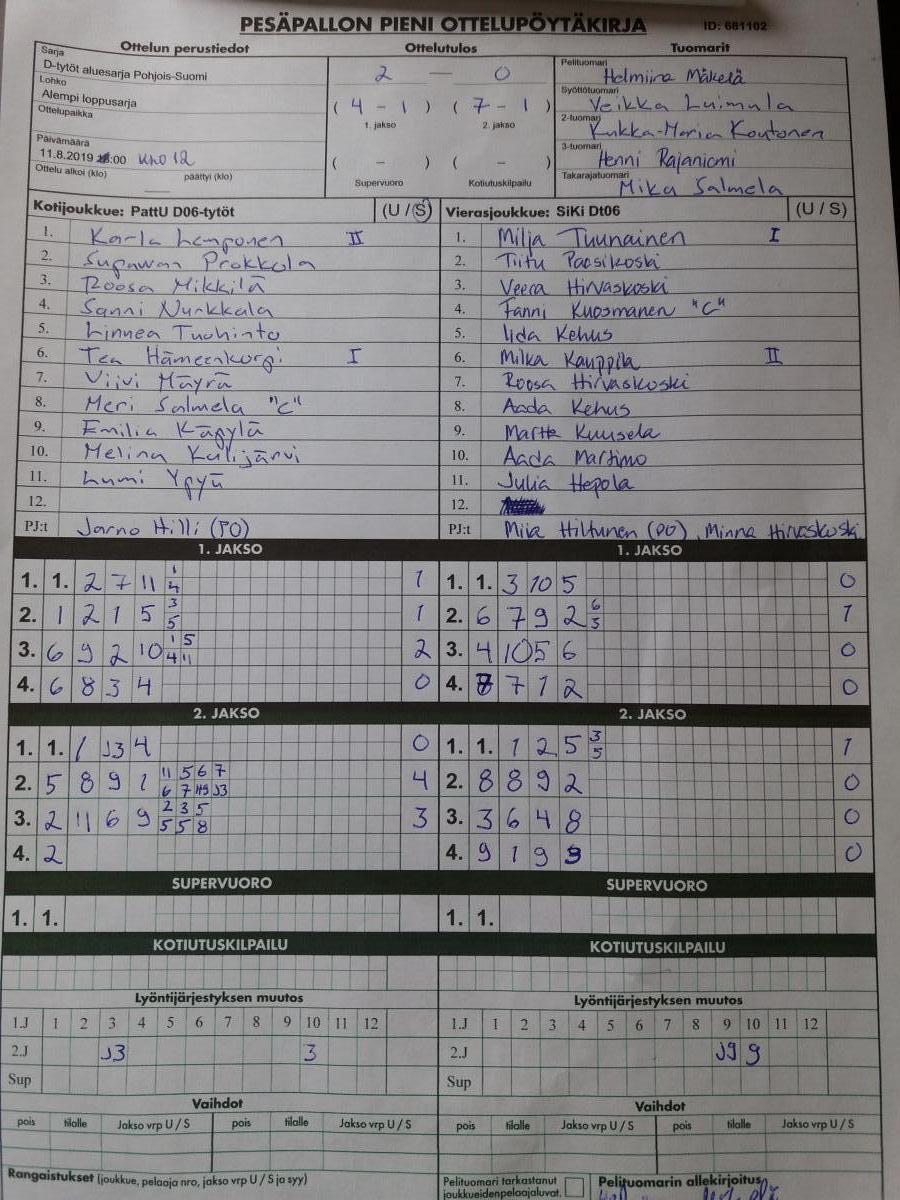 PESÄPALLON PIENI OTTELUPÖYTÄKIRJA ID: 681102
Ottelun perustiedot Ottelutulos Tuomarit
Sarja
D-tytöt aluesarja Pohjois-Suomi
Lohko
Alempi loppusarja
Ottelupaikka
Päivämäärä
11.8.2019 :00 KLO 12
Ottelu alkoi (klo) päättyi (klo)
2 — 0
( 4 - 1 ) ( 7 - 1 )
1. jakso 2. jakso
( - ) ( - )
Supervuoro Kotiutuskilpailu
Pelituomari
Helmiina Mäkelä
Syöttötuomari
Veikka Luimula
2-tuomari
Kukka-Maria Koutonen
3-tuomari
Henni Rajaniemi
Takarajatuomari
Mika Salmela
Kotijoukkue: PattU D06-tytöt (U / S) Vierasjoukkue: SiKi Dt06 (U / S)
1. Karla Lamponen II 1. Milja Tuunainen I
2. Supawan Prokkola 2. Tiitu Paasikoski
3. Roosa Mikkilä 3. Veera Hirvaskoski
4. Sanni Nurkkala 4. Fanni Kuosmanen "C"
5. Linnea Tuohinto 5. Iida Kehus
6. Tea Hämeenkorpi I 6. Milka Kauppila II
7. Viivi Mäyrä 7. Roosa Hirvaskoski
8. Meri Salmela "C" 8. Aada Kehus
9. Emilia Käpylä 9. Martta Kuusela
10. Melina Kälijärvi 10. Aada Martimo
11. Lumi Ypyä 11. Julia Hepola
12. 12.
PJ:t Jarno Hilli (PO) PJ:t Miia Hiltunen (PO), Minna Hirvaskoski
1. JAKSO 1. JAKSO
1. 1. 2 7 11 1 4 1 1. 1. 3 10 5 0
2. 1 2 1 5 3 5 1 2. 6 7 9 2 6 3 1
3. 6 9 2 10 1 5 4 11 2 3. 4 10 5 6 0
4. 6 8 3 4 0 4. 7 1 2 0
2. JAKSO 2. JAKSO
1. 1. 1 J3 4 0 1. 1. 1 2 5 3 5 1
2. 5 8 9 1 11 5 6 7 6 7 J3 4 2. 8 8 9 2 0
3. 2 11 6 9 2 3 5 5 5 8 3 3. 3 6 4 8 0
4. 2 4. 9 1 9 9 0
SUPERVUORO SUPERVUORO
1. 1. 1. 1.
KOTIUTUSKILPAILU KOTIUTUSKILPAILU
Lyöntijärjestyksen muutos Lyöntijärjestyksen muutos
1.J 1 2 3 4 5 6 7 8 9 10 11 12 1.J 1 2 3 4 5 6 7 8 9 10 11 12
2.J J3 3 2.J J9 9
Sup Sup
Vaihdot Vaihdot
pois tilalle Jakso vrp U / S pois tilalle Jakso vrp U / S pois tilalle Jakso vrp U / S pois tilalle Jakso vrp U / S
Rangaistukset (joukkue, pelaaja nro, jakso vrp U / S ja syy) Pelituomari tarkastanut Pelituomarin allekirjoitus
joukkueidenpelaajaluvat.